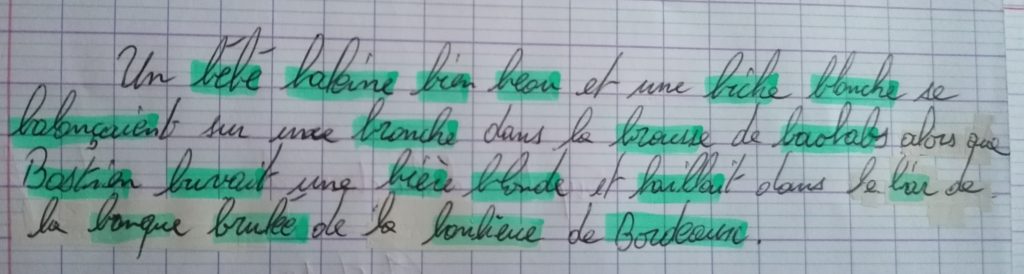 Un bébé baleine bien beau et une biche blanche se
balançaient sur une branche dans la brousse de baobabs alors que
Bastien buvait une bière blonde et baillait dans le bar de
la banque brulée de la banlieue de Bordeaux.